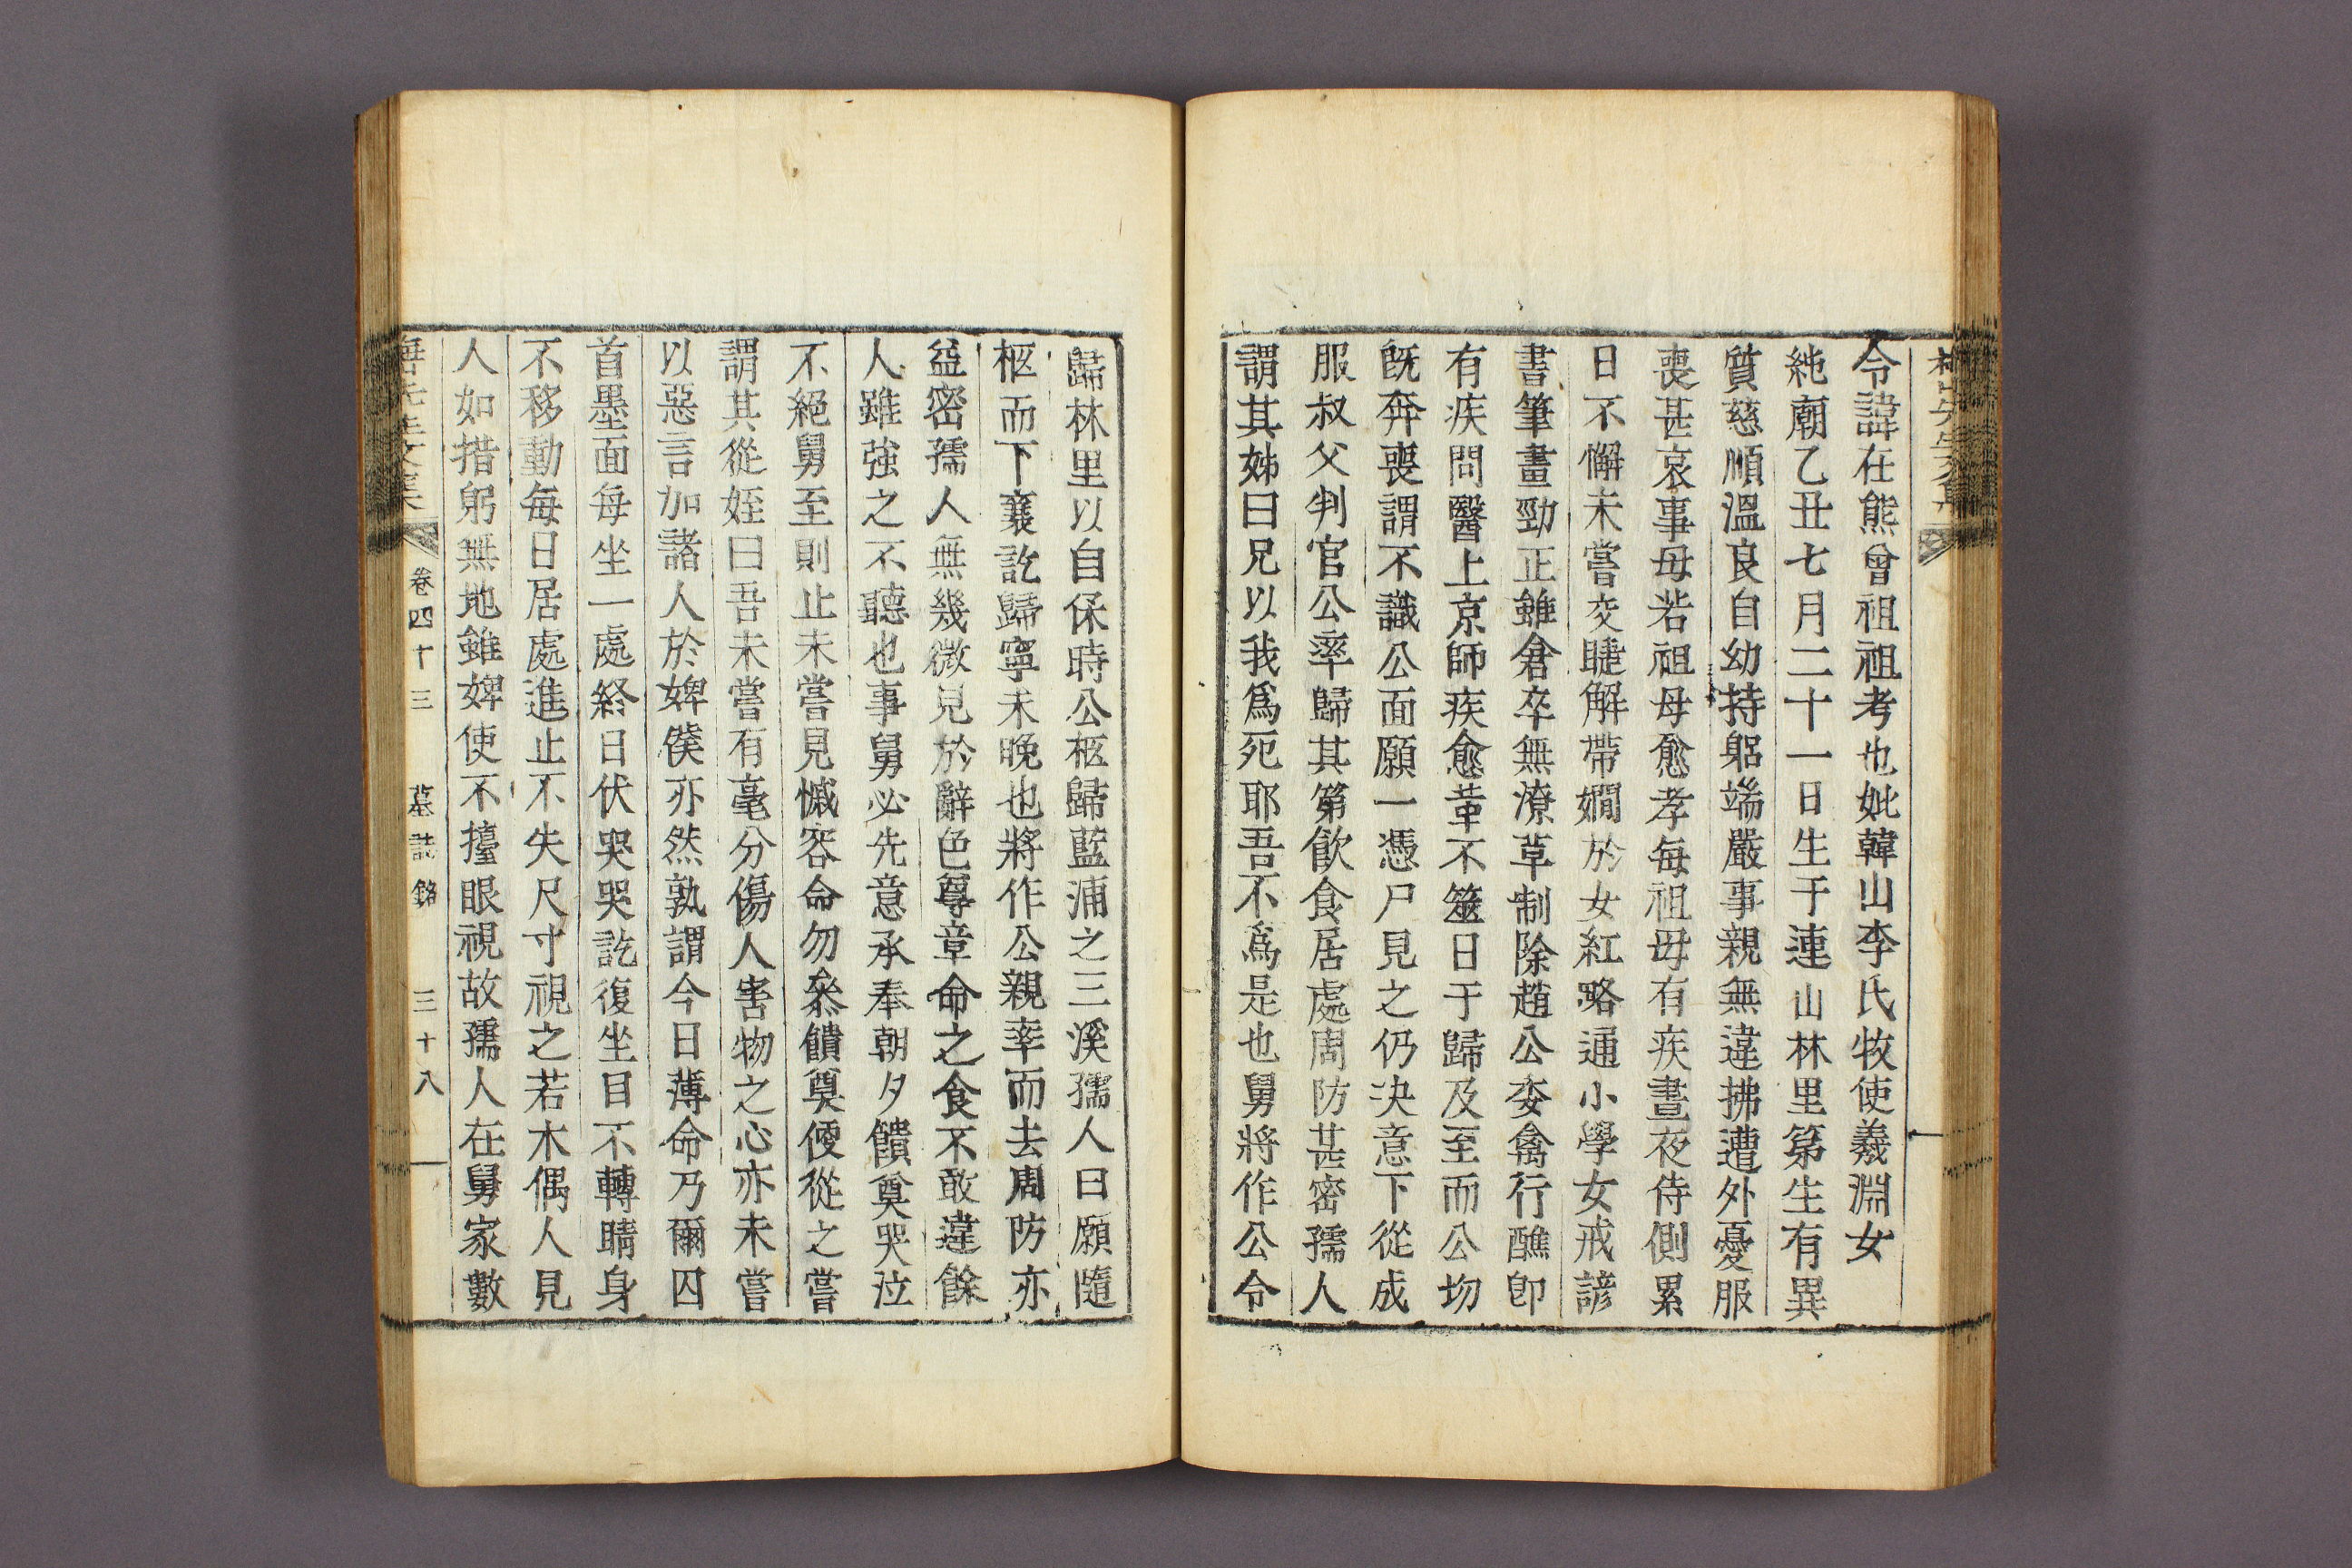 令諱在熊曾祖祖考也妣韓山李氏牧使羲淵女
純廟乙丑七月二十一日生于連山林里第生有異
質慈順溫良自幼持躬端嚴事親無違拂遭外憂服
喪甚哀事母若祖母愈孝每祖母有疾晝夜侍側累
日不懈未嘗交睫解帶嫺於女紅略通小學女戒諺
書筆畫勁正雖倉卒無潦草制除趙公委禽行醮卽
有疾問醫上京師疾愈革不筮日于歸及至而公歾
旣奔喪謂不識公面願一憑尸見之仍决意下從成
服叔父判官公率歸其第飮食居處周防甚密孺人
謂其姊曰兄以我爲死耶吾不爲是也舅將作公令
歸林里以自保時公柩歸藍浦之三溪孺人曰願隨
柩而下襄訖歸寧未晩也將作公親率而去周防亦
益密孺人無幾微見於辭色尊章命之食不敢違餘
人雖強之不聽也事舅必先意承奉朝夕饋奠哭泣
不絕舅至則止未嘗見慽容命勿參饋奠便從之嘗
謂其從姪曰吾未嘗有毫分傷人害物之心亦未嘗
以惡言加諸人於婢僕亦然孰謂今日薄命乃爾囚
首墨面每坐一處終日伏哭哭訖復坐目不轉睛身
不移動每日居處進止不失尺寸視之若木偶人見
人如措躬無地雖婢使不擡眼視故孺人在舅家數
卷四十三 墓誌銘 三十八